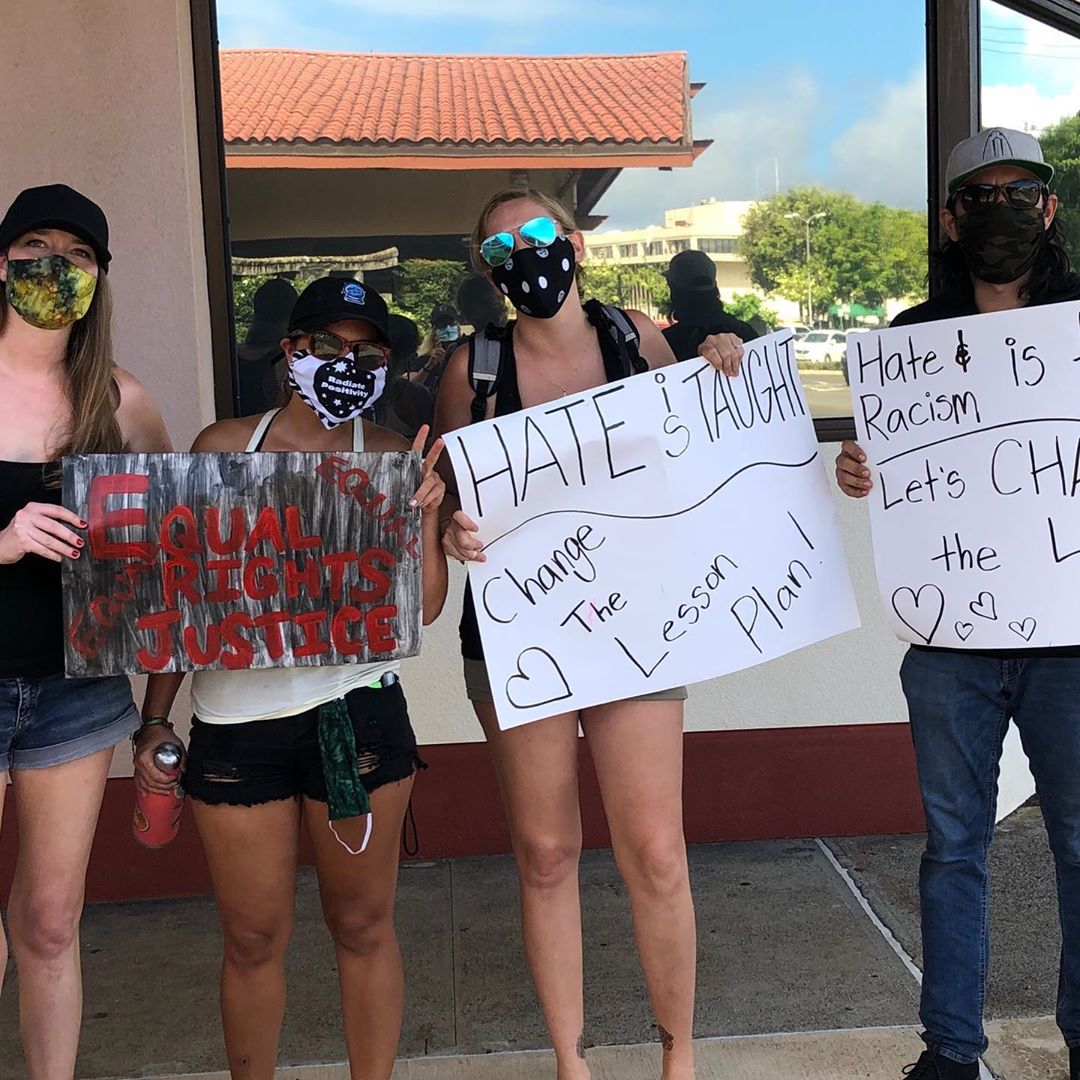 Radiate
Positivity
EQUAL
EQUAL
RIGHTS
JUSTICE
EQUAL
HATE is TAUGHT
Change
The
Lesson
Plan!
Hate & is
Racism
Let's
the